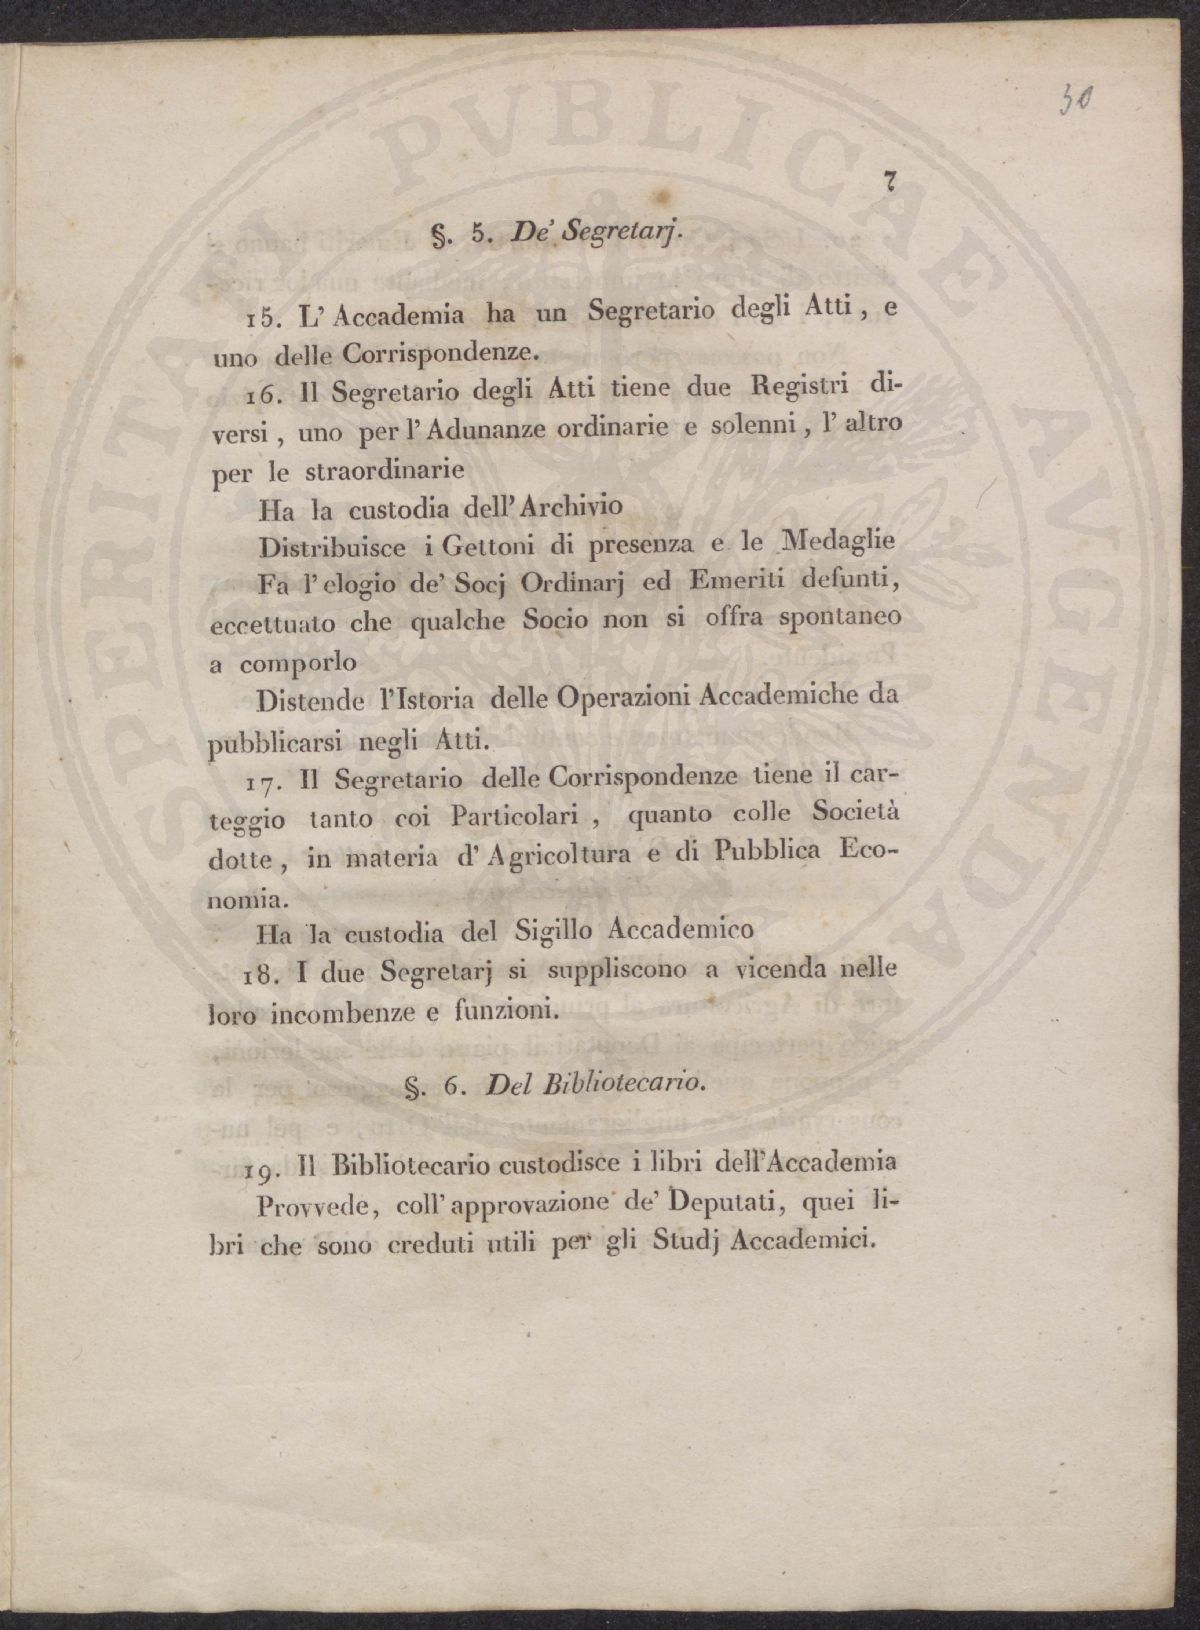 30
7
§. 5. De' Segretarj.
15. L' Accademia ha un Segretario degli Atti, e
uno delle Corrispondenze.
16. Il Segretario degli Atti tiene due Registri di-
versi, uno per l' Adunanze ordinarie e solenni, l' altro
per le straordinarie
Ha la custodia dell' Archivio
Distribuisce i Gettoni di presenza e le Medaglie
Fa l' elogio de' Socj Ordinarj ed Emeriti defunti,
eccettuato che qualche Socio non si offra spontaneo
a comporlo
Distende l'Istoria delle Operazioni Accademiche da
pubblicarsi negli Atti.
17. Il Segretario delle Corrispondenze tiene il car-
teggio tanto coi Particolari, quanto colle Società
dotte, in materia d' Agricoltura e di Pubblica Eco-
nomia.
Ha la custodia del Sigillo Accademico
18. I due Segretarj si suppliscono a vicenda nelle
loro incombenze e funzioni.
§. 6. Del Bibliotecario.
19. Il Bibliotecario custodisce i libri dell'Accademia
Provvede, coll' approvazione de' Deputati, quei li-
bri che sono creduti utili per gli Studj Accademici.
PROSPERITATI PVBLICAE AVGENDAE